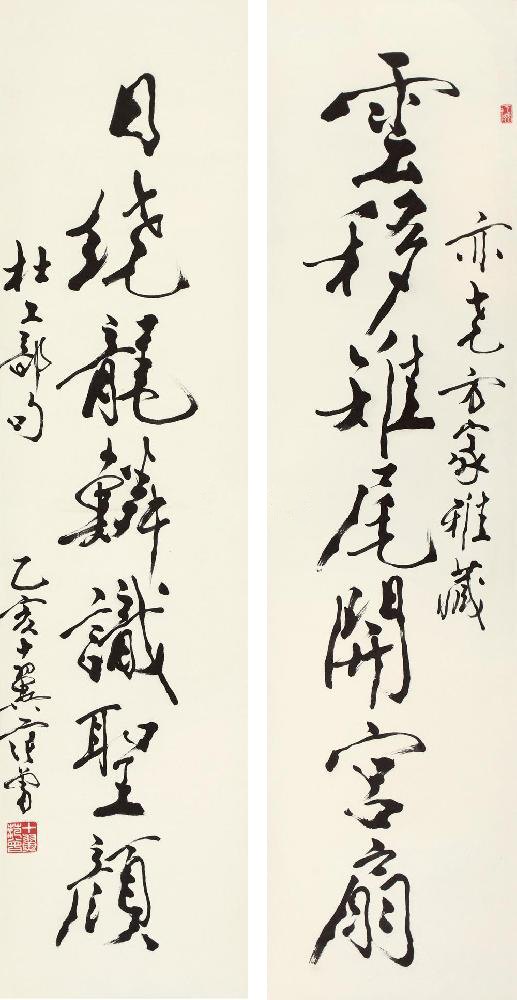 亦堯方家雅藏
雲移雉尾開宮扇
日繞龍鱗識聖顏
杜工部句
乙亥十翼范曾